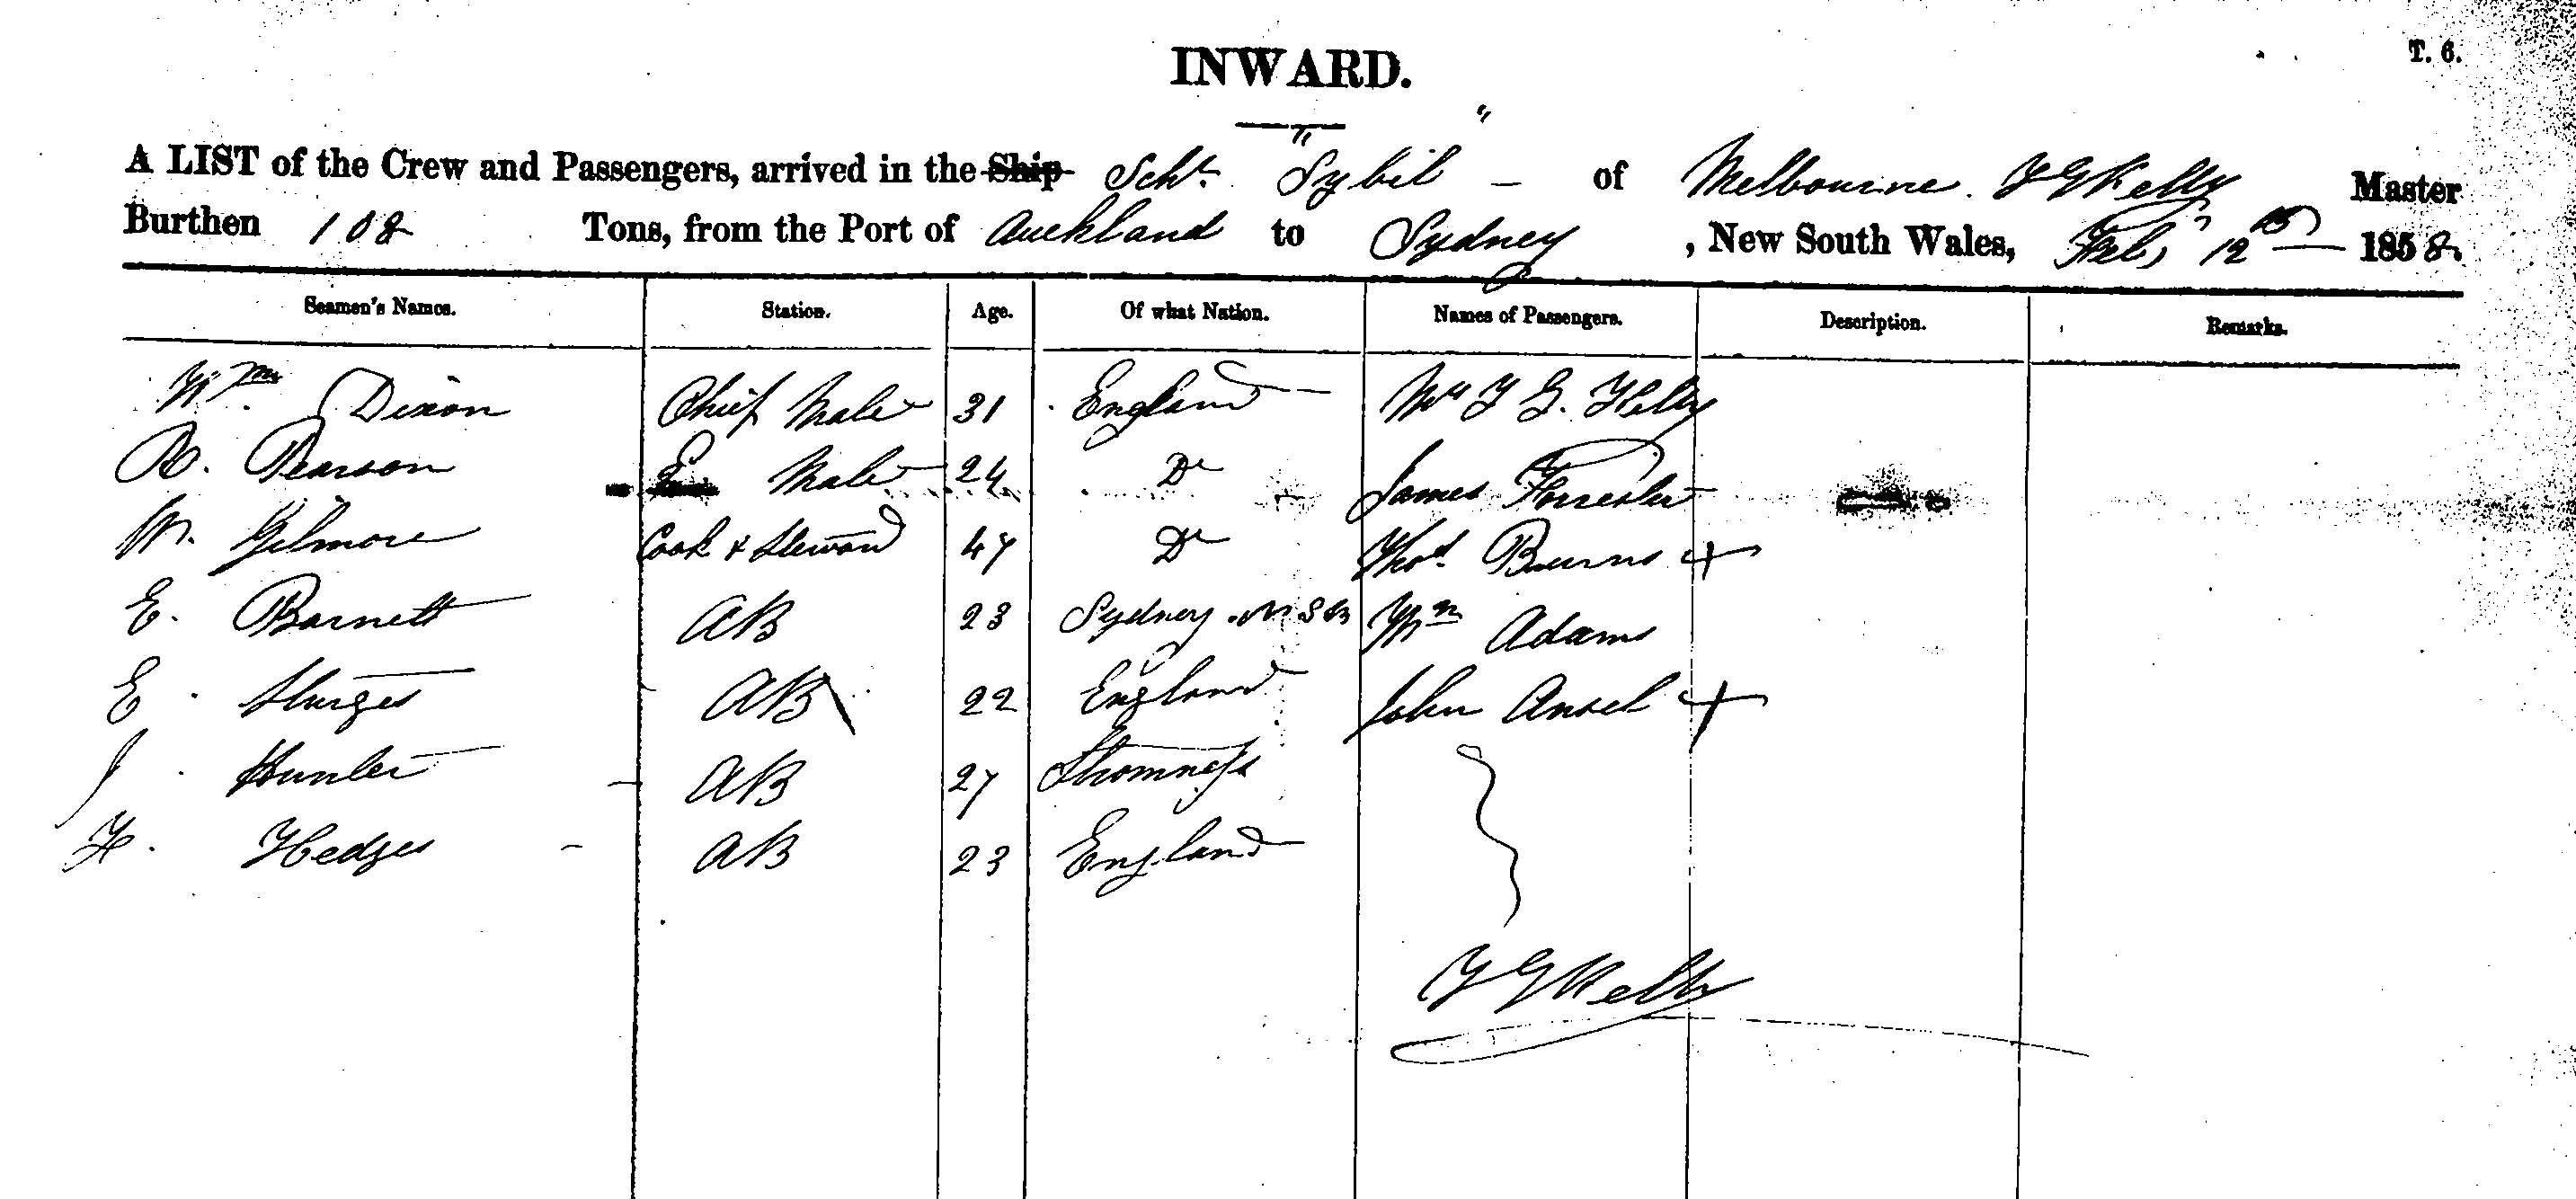 T. 6.
INWARD.
A LIST of the Crew and Passengers, arrived in the Ship Schr. "Sybil" – of Melbourne. Kelly Master
Burthen 108 Tons, from the Port of Auckland to Sydney, New South Wales, Feby 12th 1858.
Seamen's Names. Station. Age. Of what Nation. Names of Passengers. Description. Remarks.
Wm Dixon Chief Mate 31 England G. Kelly
R. Pearson Mate 24 Do James Forrester
W. Gilmore Cook & Steward 47 Do Thos Burns +
E. Barnett AB 23 Sydney NSW Wm Adams
E. Sturges AB 22 England John Ansel +
J. Hunter AB 27 Stromness
H. Hedges AB 23 England
Kelly